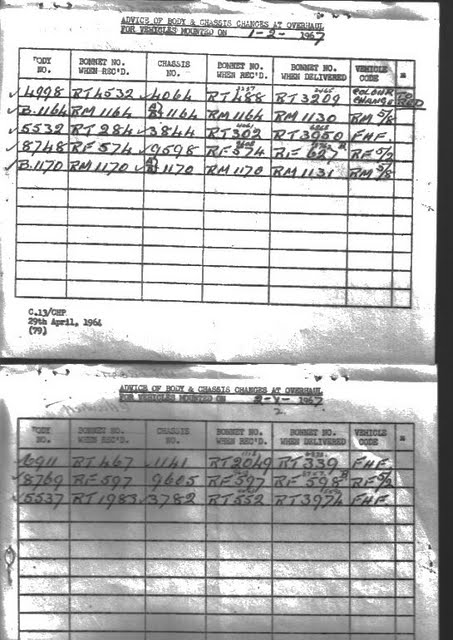 ADVICE OF BODY & CHASSIS CHANGES AT OVERHAUL
FOR VEHICLES MOUNTED ON 1-2-1967
BODY NO. BONNET NO. WHEN REC'D. CHASSIS NO. BONNET NO. WHEN REC'D. BONNET NO. WHEN DELIVERED VEHICLE CODE
✓4998 RT4532 ✓4064 RT488 RT3209 COLOUR CHANGE TO RED
✓B.1164 RM1164 1164 RM1164 RM1130 RM 5/8
✓5532 RT284 ✓3844 RT302 RT3050 FHF
✓8748 RF574 ✓9598 RF574 RF627 RF5/2
✓B.1170 RM1170 1170 RM1170 RM1131 RM 5/8
C.13/CHP
29th April, 1964
(79)
ADVICE OF BODY & CHASSIS CHANGES AT OVERHAUL
FOR VEHICLES MOUNTED ON 1967
2.
BODY NO. BONNET NO. WHEN REC'D. CHASSIS NO. BONNET NO. WHEN REC'D. BONNET NO. WHEN DELIVERED VEHICLE CODE
✓6911 RT467 ✓1141 RT2049 RT339 FHF
✓8769 RF597 9605 RF597 RF598 RF5/2
✓5537 RT1983 ✓3782 RT552 RT3974 FHF